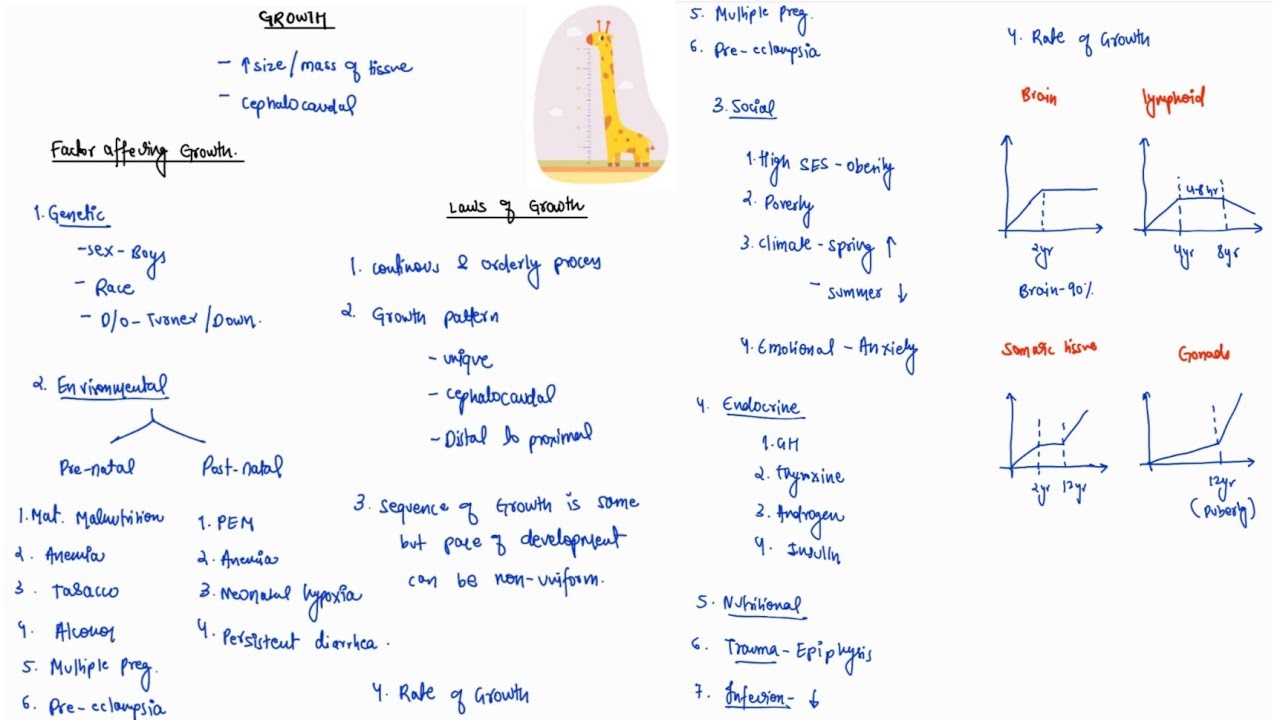 GROWTH
- ↑ size/mass of tissue
- cephalocaudal
Factor affecting Growth.
1. Genetic
- sex - Boys
- Race
- D/o - Turner/Down.
2. Environmental
Pre-natal
Post-natal
1. Mat. Malnutrition
2. Anemia
3. Tabacco
4. Alcohol
5. Multiple preg.
6. Pre-eclampsia
1. PEM
2. Anemia
3. Neonatal hypoxia
4. Persistent diarrhea.
Laws of Growth
1. continous & orderly process
2. Growth pattern
- unique
- cephalocaudal
- Distal to proximal
3. sequence of Growth is same
but pace of development
can be non-uniform.
4. Rate of Growth
5. Multiple preg.
6. Pre-eclampsia
3. Social
1. High SES - obesity
2. Poverty
3. climate - spring ↑
- summer ↓
4. Emotional - Anxiety
4. Endocrine
1. GH
2. Thyroxine
3. Androgen
4. Insulin
5. Nutritional
6. Trauma - Epiphysis
7. Infection - ↓
4. Rate of Growth
Brain
2yr
Brain-90%
lymphoid
4-8yr
4yr 8yr
Somatic tissue
2yr 12yr
Gonads
12yr
(Puberty)